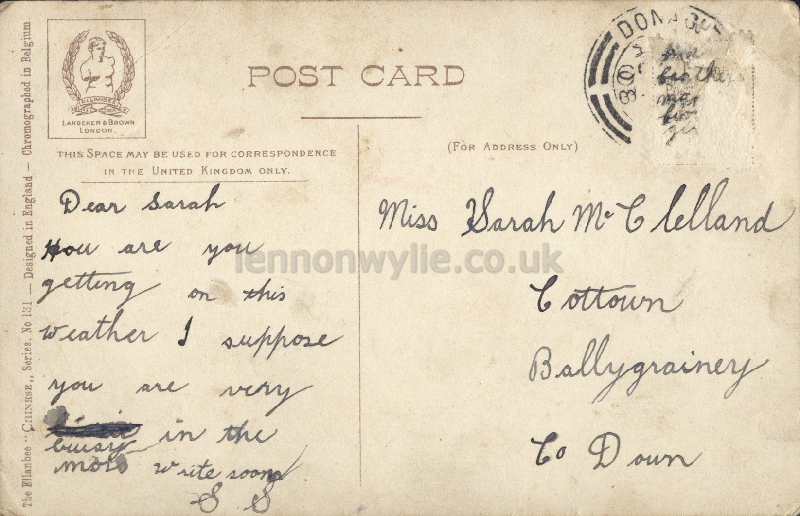 The Ellanbee "CHINESE„ Series, No 131 — Designed in England — Chromographed in Belgium
ELLANBEE
LANDEKER & BROWN
LONDON.
POST CARD
THIS SPACE MAY BE USED FOR CORRESPONDENCE
IN THE UNITED KINGDOM ONLY.
(FOR ADDRESS ONLY)
DONAG
Dear Sarah
How are you
getting on this
weather I suppose
you are very
in the
moss write soon
S S
Miss Sarah Mc Clelland
Cottown
Ballygrainey
Co Down
brother
lennonwylie.co.uk